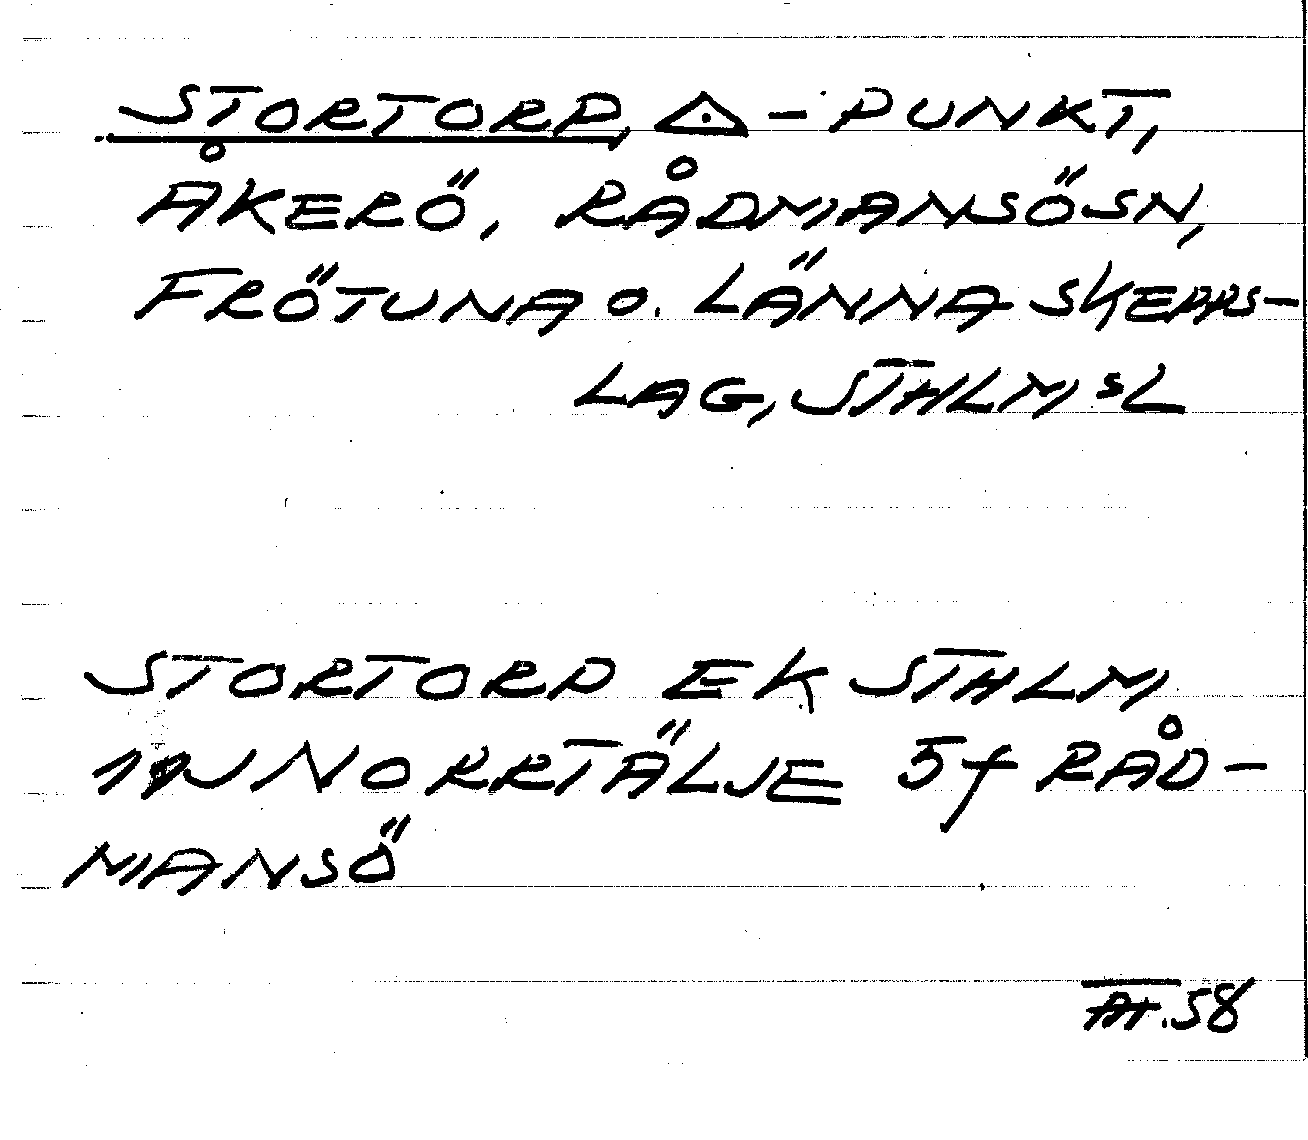 STORTORP, △ - PUNKT,
ÅKERÖ, RÅDMANSÖ SN,
FRÖTUNA O. LÄNNA SKEPPS-
LAG, STHLMS L
STORTORP EK STHLM
11J NORRTÄLJE 5f RÅD-
MANSÖ
58